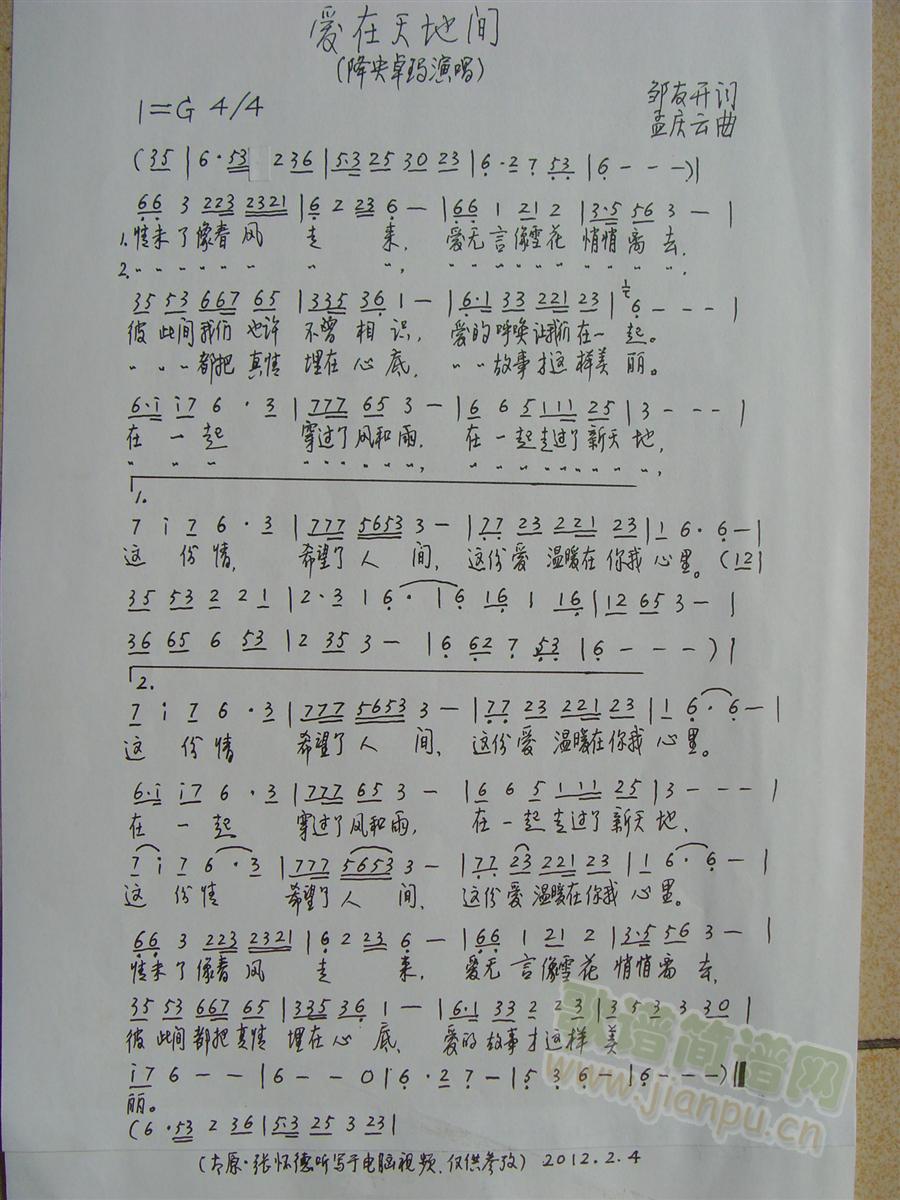 爱在天地间
(降央卓玛演唱)
1=G 4/4
邹友开词
孟庆云曲
(35 | 6·53 236 | 5·3 25 30 23 | 6·27 53 | 6 - - - ) |
66 3 223 2321 | 6 2 23 6 - | 66 1 21 2 | 3·5 56 3 - |
1. 情来了像春风 走 来, 爱无言像雪花 悄悄离去,
2. " " " " " " " ", " " " " " " " " " ",
35 53 667 65 | 335 36 1 - | 6·1 33 221 23 | 6 - - - |
彼此间我们也许 不曾相识, 爱的呼唤让我们在一起。
" " " 都把真情 埋在心底, " " 故事才这样美丽。
6·i i7 6 · 3 | 777 65 3 - | 6 6 5 111 25 | 3 - - - |
在 一 起 穿过了风和雨, 在一起走过了新天地,
" " " " " " " " ", " " " " " " " " ",
1.
7 i 7 6 · 3 | 777 5653 3 - | 77 23 221 23 | 1 6· 6 - |
这 份情, 希望了人间, 这份爱温暖在你我心里。 (12 |
35 53 2 2 1 | 2·3 1 6· | 6 16 1 16 | 12 65 3 - |
36 65 6 53 | 2 35 3 - | 6 62 7 53 | 6 - - - ) |
2.
7 i 7 6 · 3 | 777 5653 3 - | 77 23 221 23 | 1 6· 6 - |
这 份情 希望了人间, 这份爱温暖在你我心里。
6·i i7 6 · 3 | 777 65 3 - | 6 6 5 111 25 | 3 - - - |
在 一 起 穿过了风和雨, 在一起走过了新天地,
7 i 7 6 · 3 | 777 5653 3 - | 77 23 221 23 | 1 6 · 6 - |
这 份情 希望了人间, 这份爱温暖在你我心里。
66 3 223 2321 | 6 2 23 6 - | 66 1 21 2 | 3·5 56 3 - |
情来了像春风 走 来, 爱无言像雪花 悄悄离去,
35 53 667 65 | 335 36 1 - | 6·1 33 2 23 | 3 5 3 3 30 |
彼此间都把真情 埋在心底, 爱的故事才这样美
i7 6 - - | 6 - - 0 | 6·27 - | 5 3 6 - | 6 - - - ) ‖
丽。
(6·53 2 36 | 5·3 25 3 23 |
(太原·张怀德听写于电脑视频,仅供参考) 2012.2.4
歌谱简谱网
www.jianpu.cn